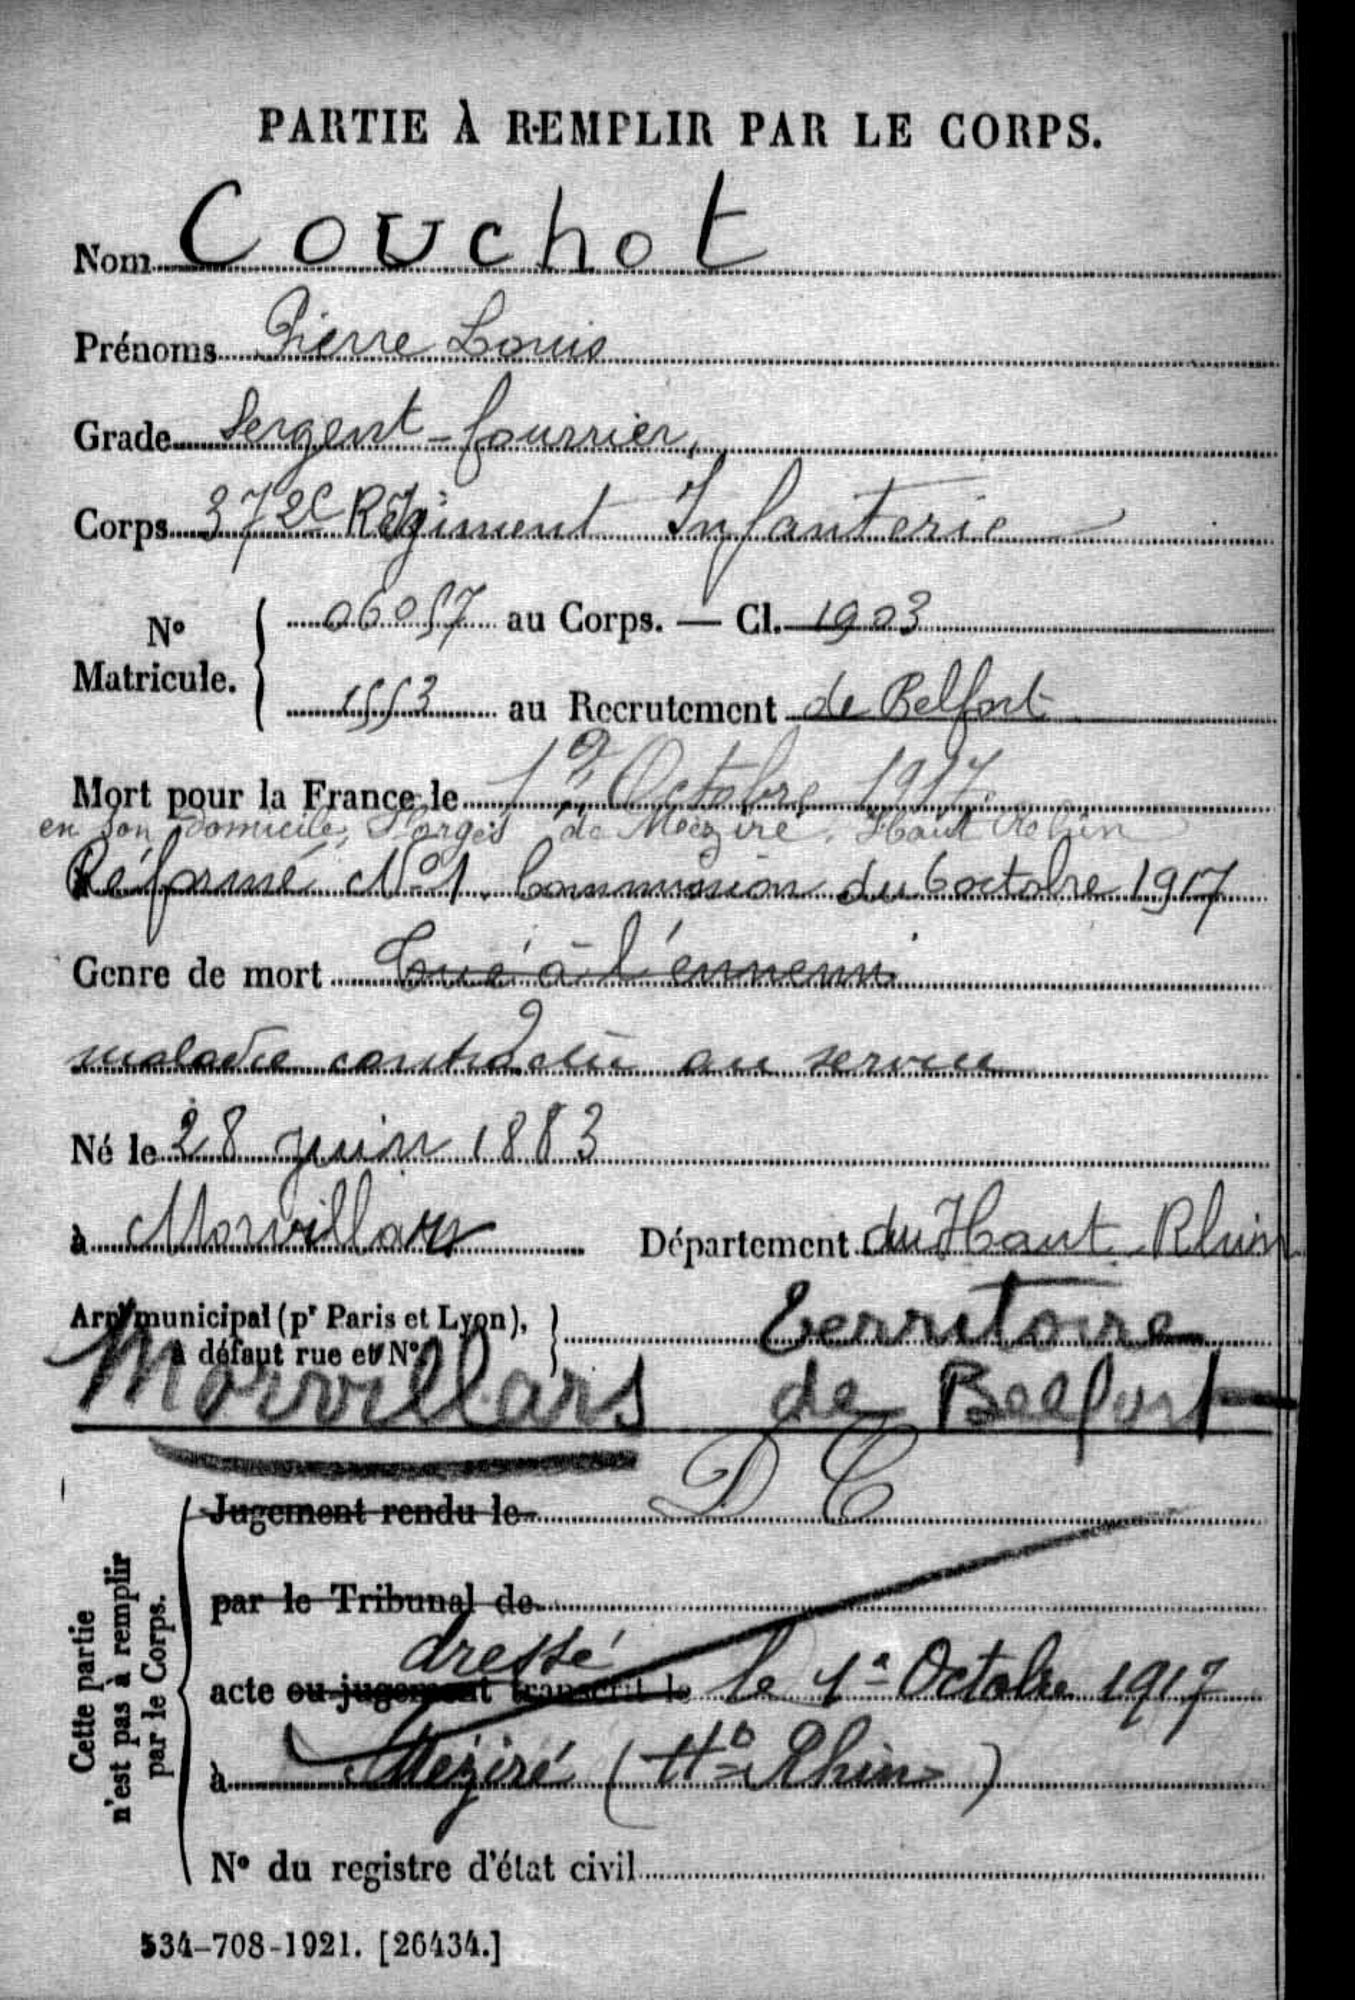 PARTIE À REMPLIR PAR LE CORPS.
Nom Couchot
Prénoms Pierre Louis
Grade Sergent-fourrier,
Corps 372e Régiment Infanterie
N° Matricule. 06057 au Corps. — Cl. 1903
1553 au Recrutement de Belfort
Mort pour la France le 1er Octobre 1917.
en son domicile, Forges de Méziré, Haut Rhin
Réformé N°1. Commission du 6 octobre 1917
Genre de mort Tué à l'ennemi
maladie contractée au service
Né le 28 juin 1883
à Morvillars Département du Haut-Rhin
Arrt municipal (pr Paris et Lyon), à défaut rue et N°
Territoire
Morvillars de Belfort
D C
Cette partie n'est pas à remplir par le Corps.
Jugement rendu le
par le Tribunal de
dressé
acte ou jugement transcrit le le 1er Octobre 1917
à Méziré (Ht Rhin)
N° du registre d'état civil
534-708-1921. [26434.]